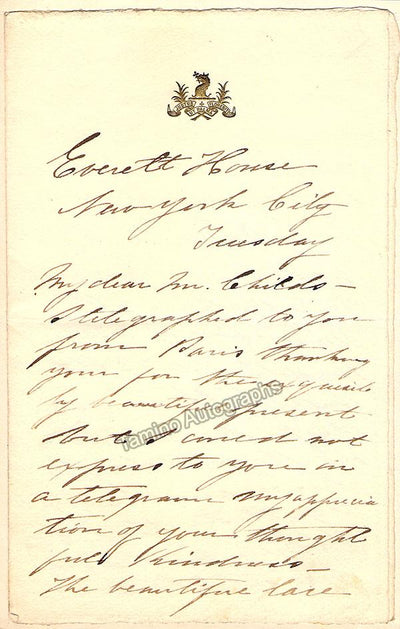 Everett House
New York City
Tuesday
My dear Mr. Childs—
I telegraphed to you
from Paris thanking
you for the exquisite
ly beautiful present
but I could not
express to you in
a telegram my apprecia
tion of your thought
ful kindness—
The beautiful lace
Tamino Autographs